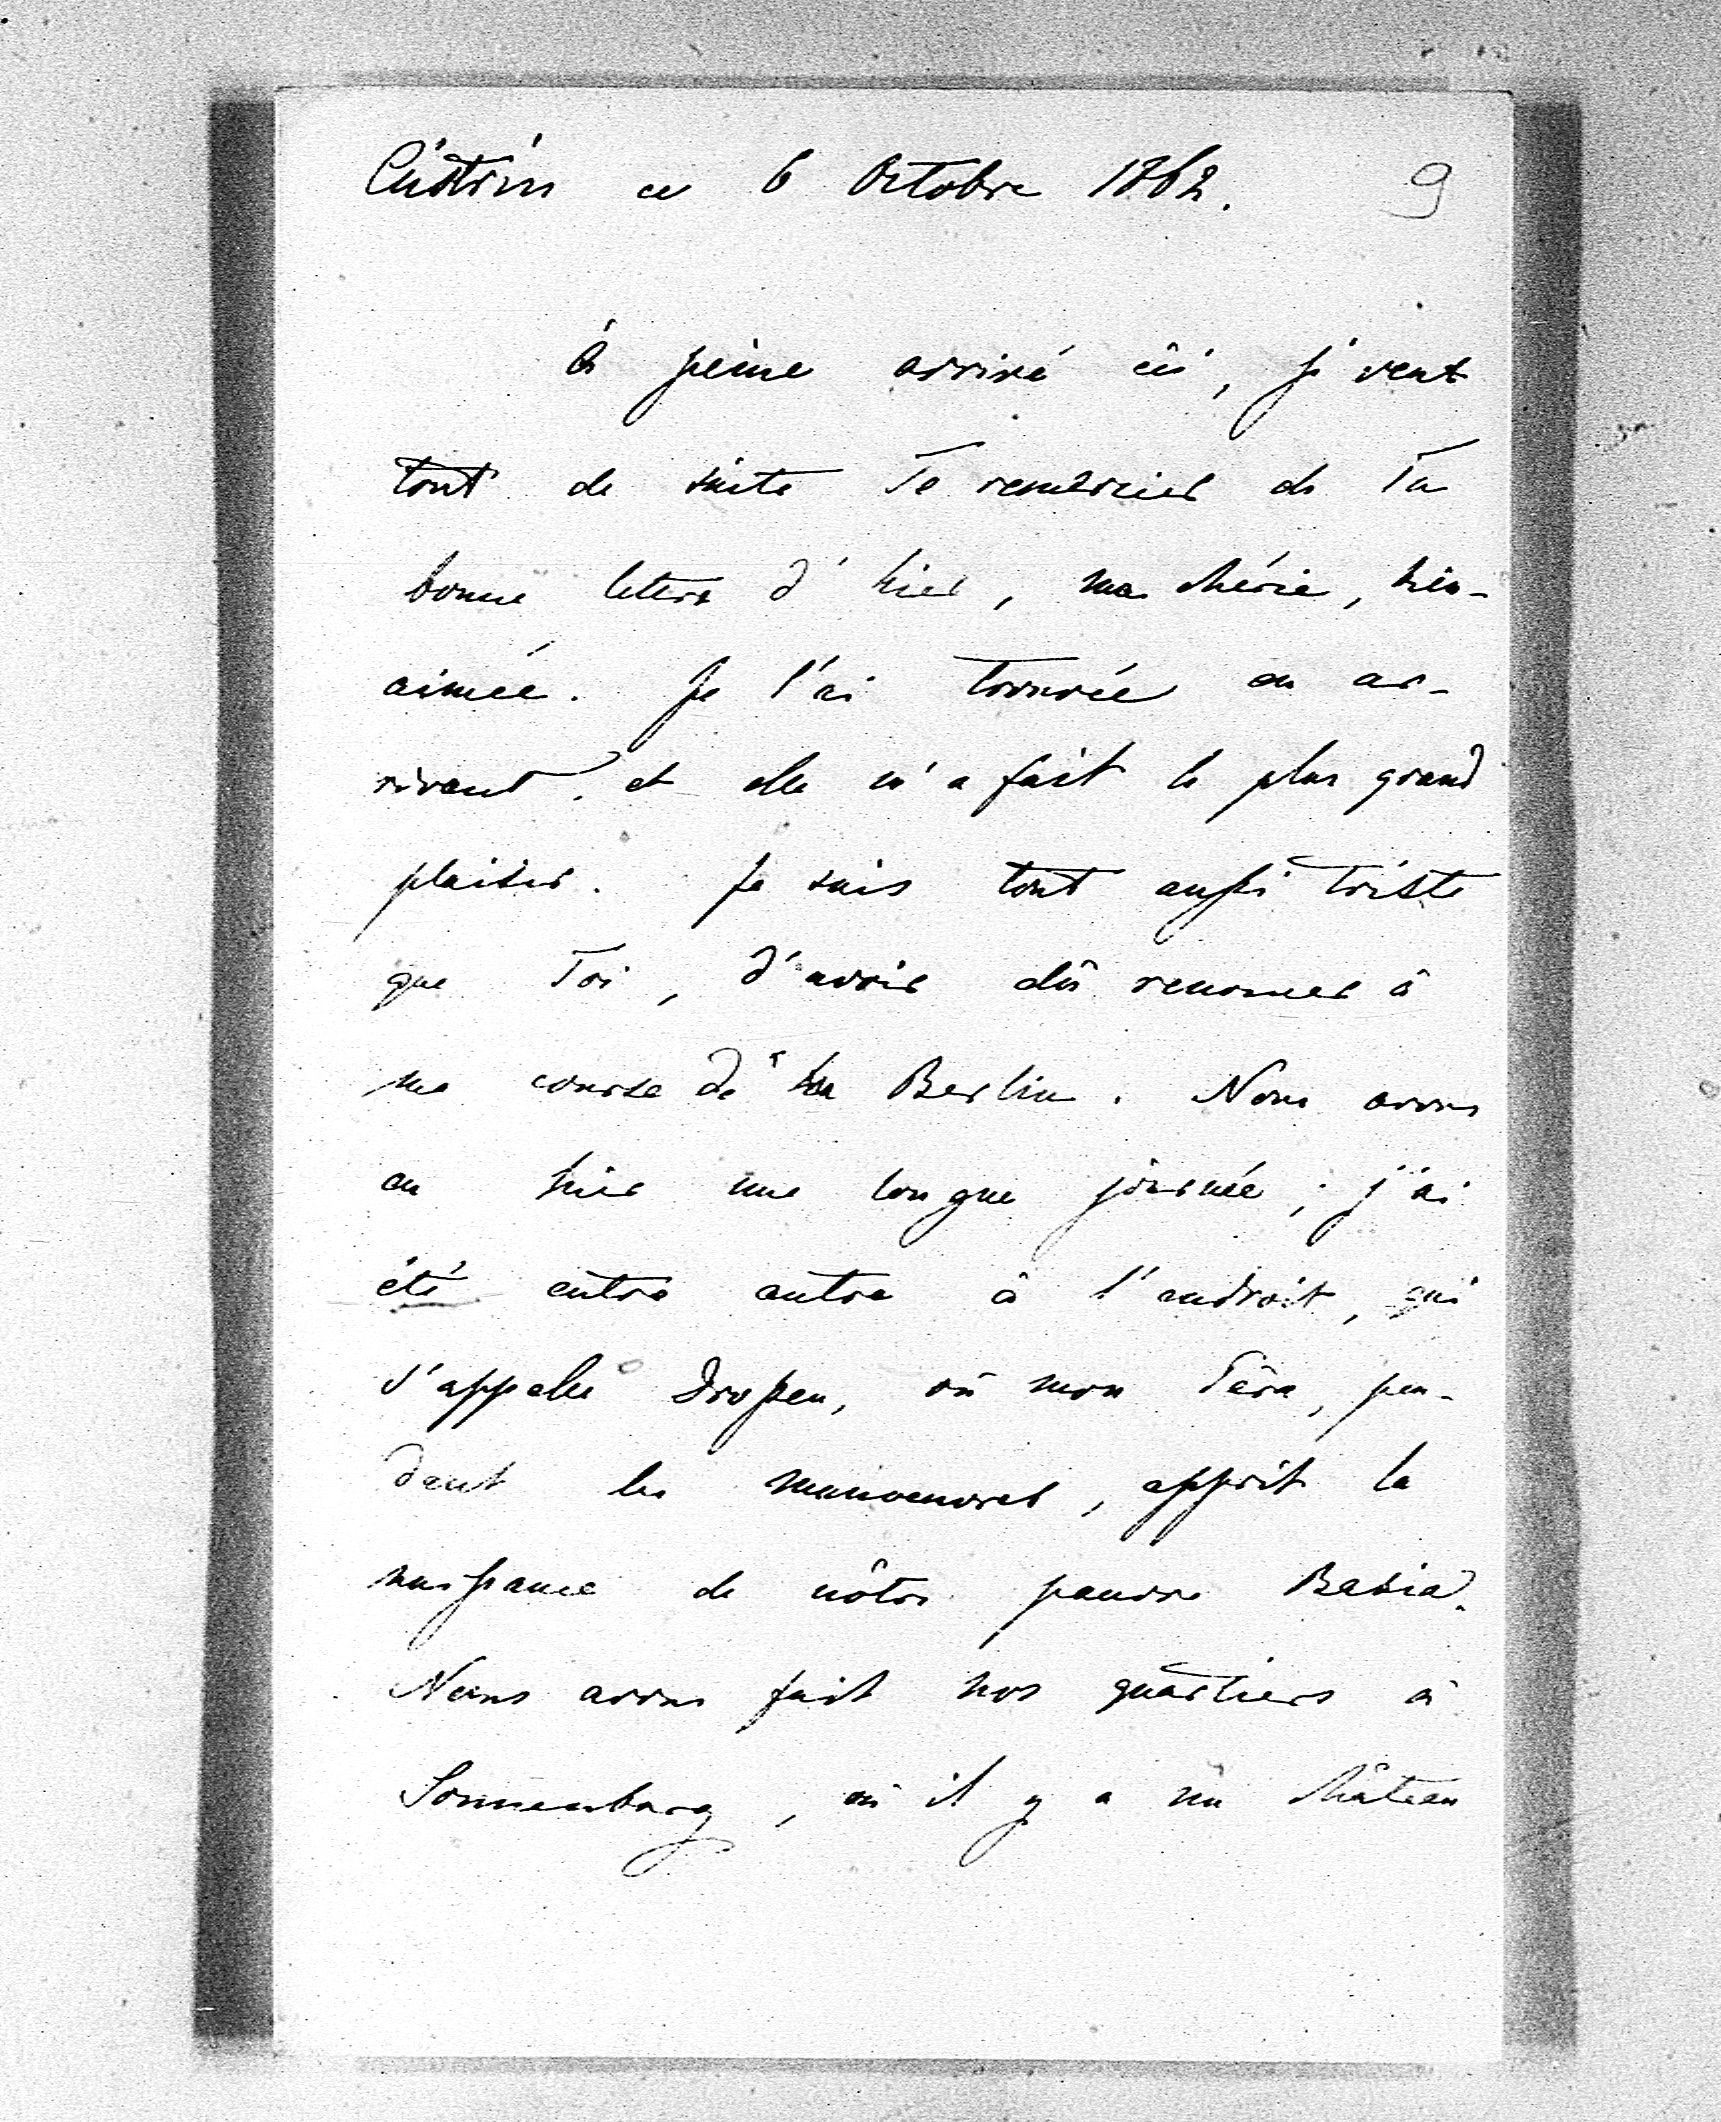 Cüstrin ce 6 Octobre 1862. 9
à peine arrivé ici, je veux
tout de suite Te remercier de Ta
bonne lettre d'hier, ma chérie, bien-
aimée. Je l'ai trouvée en ar-
rivant, et elle m'a fait le plus grand
plaisir. Je suis tout aussi triste
que Toi, d'avoir dû renoncer à
ma course de Berlin. Nous avons
eu hier une longue journée; j'ai
été entre autre à l'endroit, qui
s'appelle Drossen, où mon Père, pen-
dant les manoeuvres, apprit la
naissance de nôtre pauvre
Nous avons fait nos quartiers à
Sonnenburg, où il y a un château